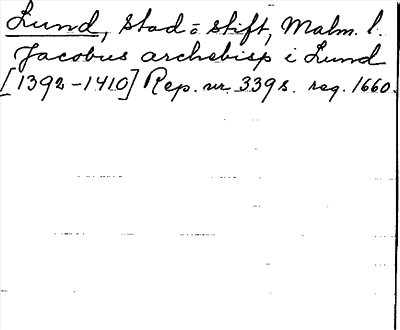 Lund, Stad o stift, Malm. l.
Jacobus archebisp i Lund
[1392-1410] Rep. nr. 339 s. reg. 1660.